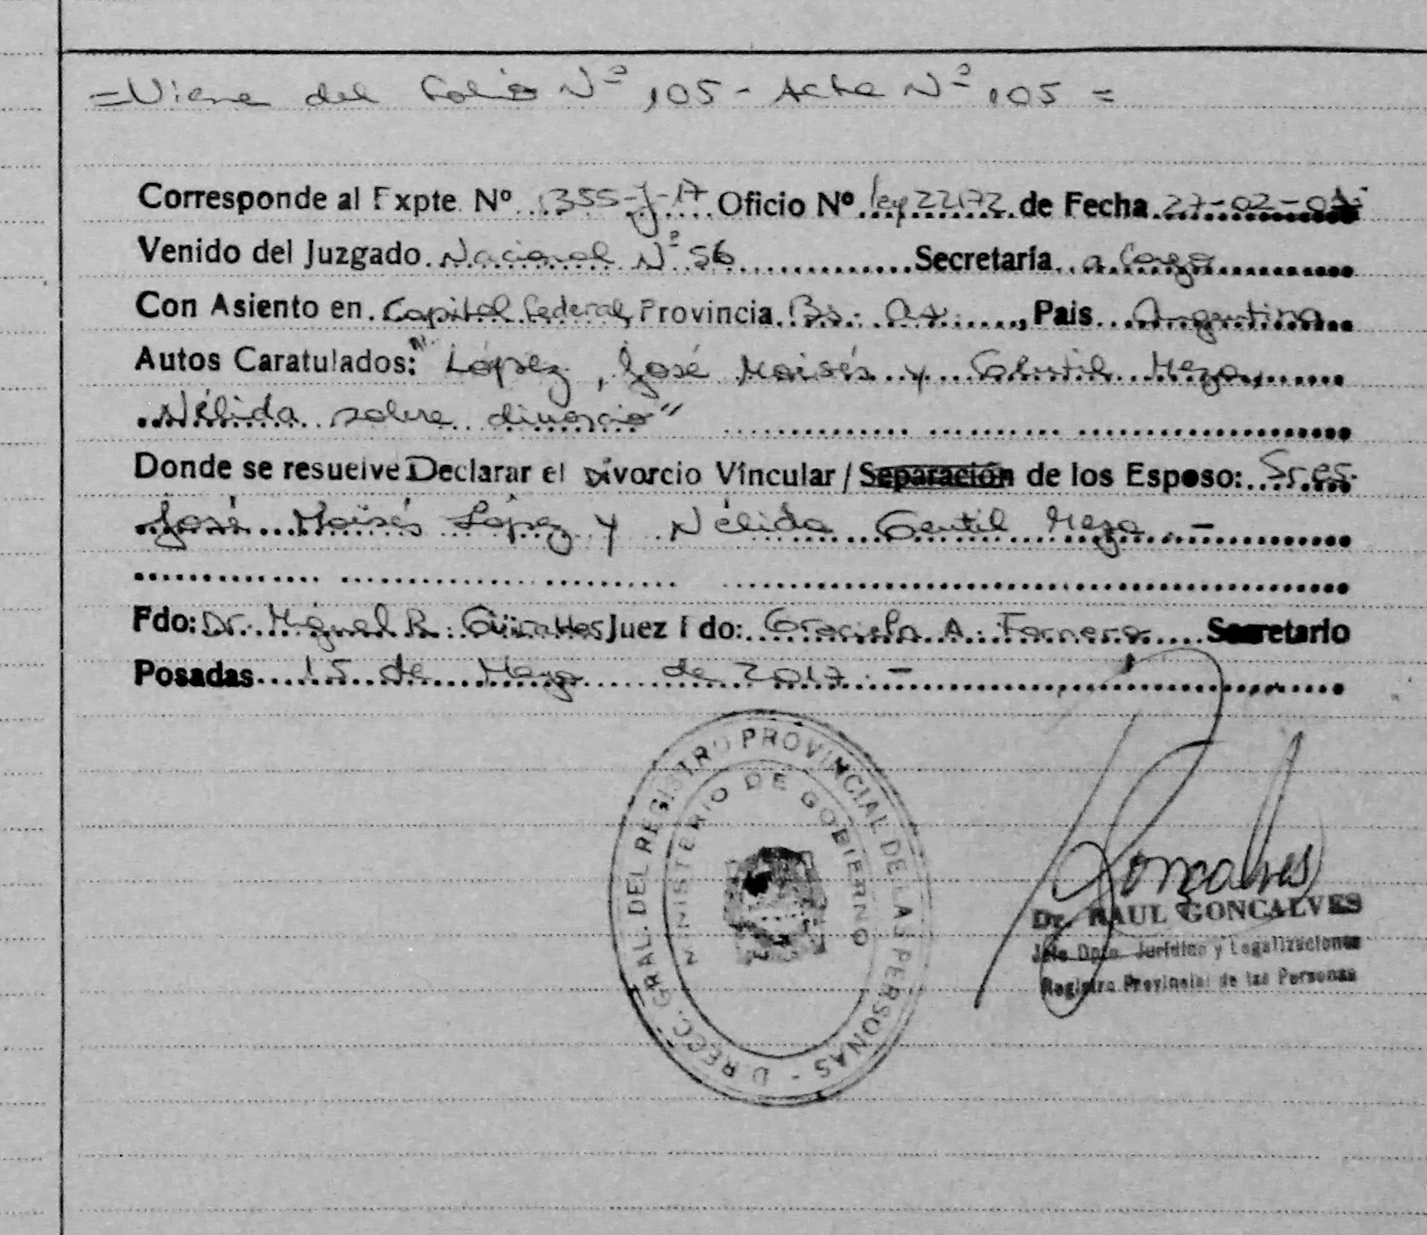 =Viene del Folio Nº 105 - Acta Nº 105 =
Corresponde al Expte. Nº 1355-J-17 Oficio Nº ley 22172 de Fecha 27-02-
Venido del Juzgado Nacional Nº 56 Secretaría a cargo
Con Asiento en Capital Federal, Provincia Bs. As., Pais Argentina
Autos Caratulados: "López, José Moisés y Meza,
Nélida sobre divorcio"
Donde se resuelve Declarar el Divorcio Vincular / Separación de los Esposo: Sres.
José Moisés López y Nélida Gentil Meza. -
Fdo: Dr. Miguel R. Juez Fdo: Graciela A. Secretario
Posadas 15 de de 2017. -
DIRECC. GRAL. DEL REGISTRO PROVINCIAL DE LAS PERSONAS -
MINISTERIO DE GOBIERNO
Goncalves
Dr. RAUL GONCALVES
Jefe Dpto. Jurídico y Legalizaciones
Registro Provincial de las Personas